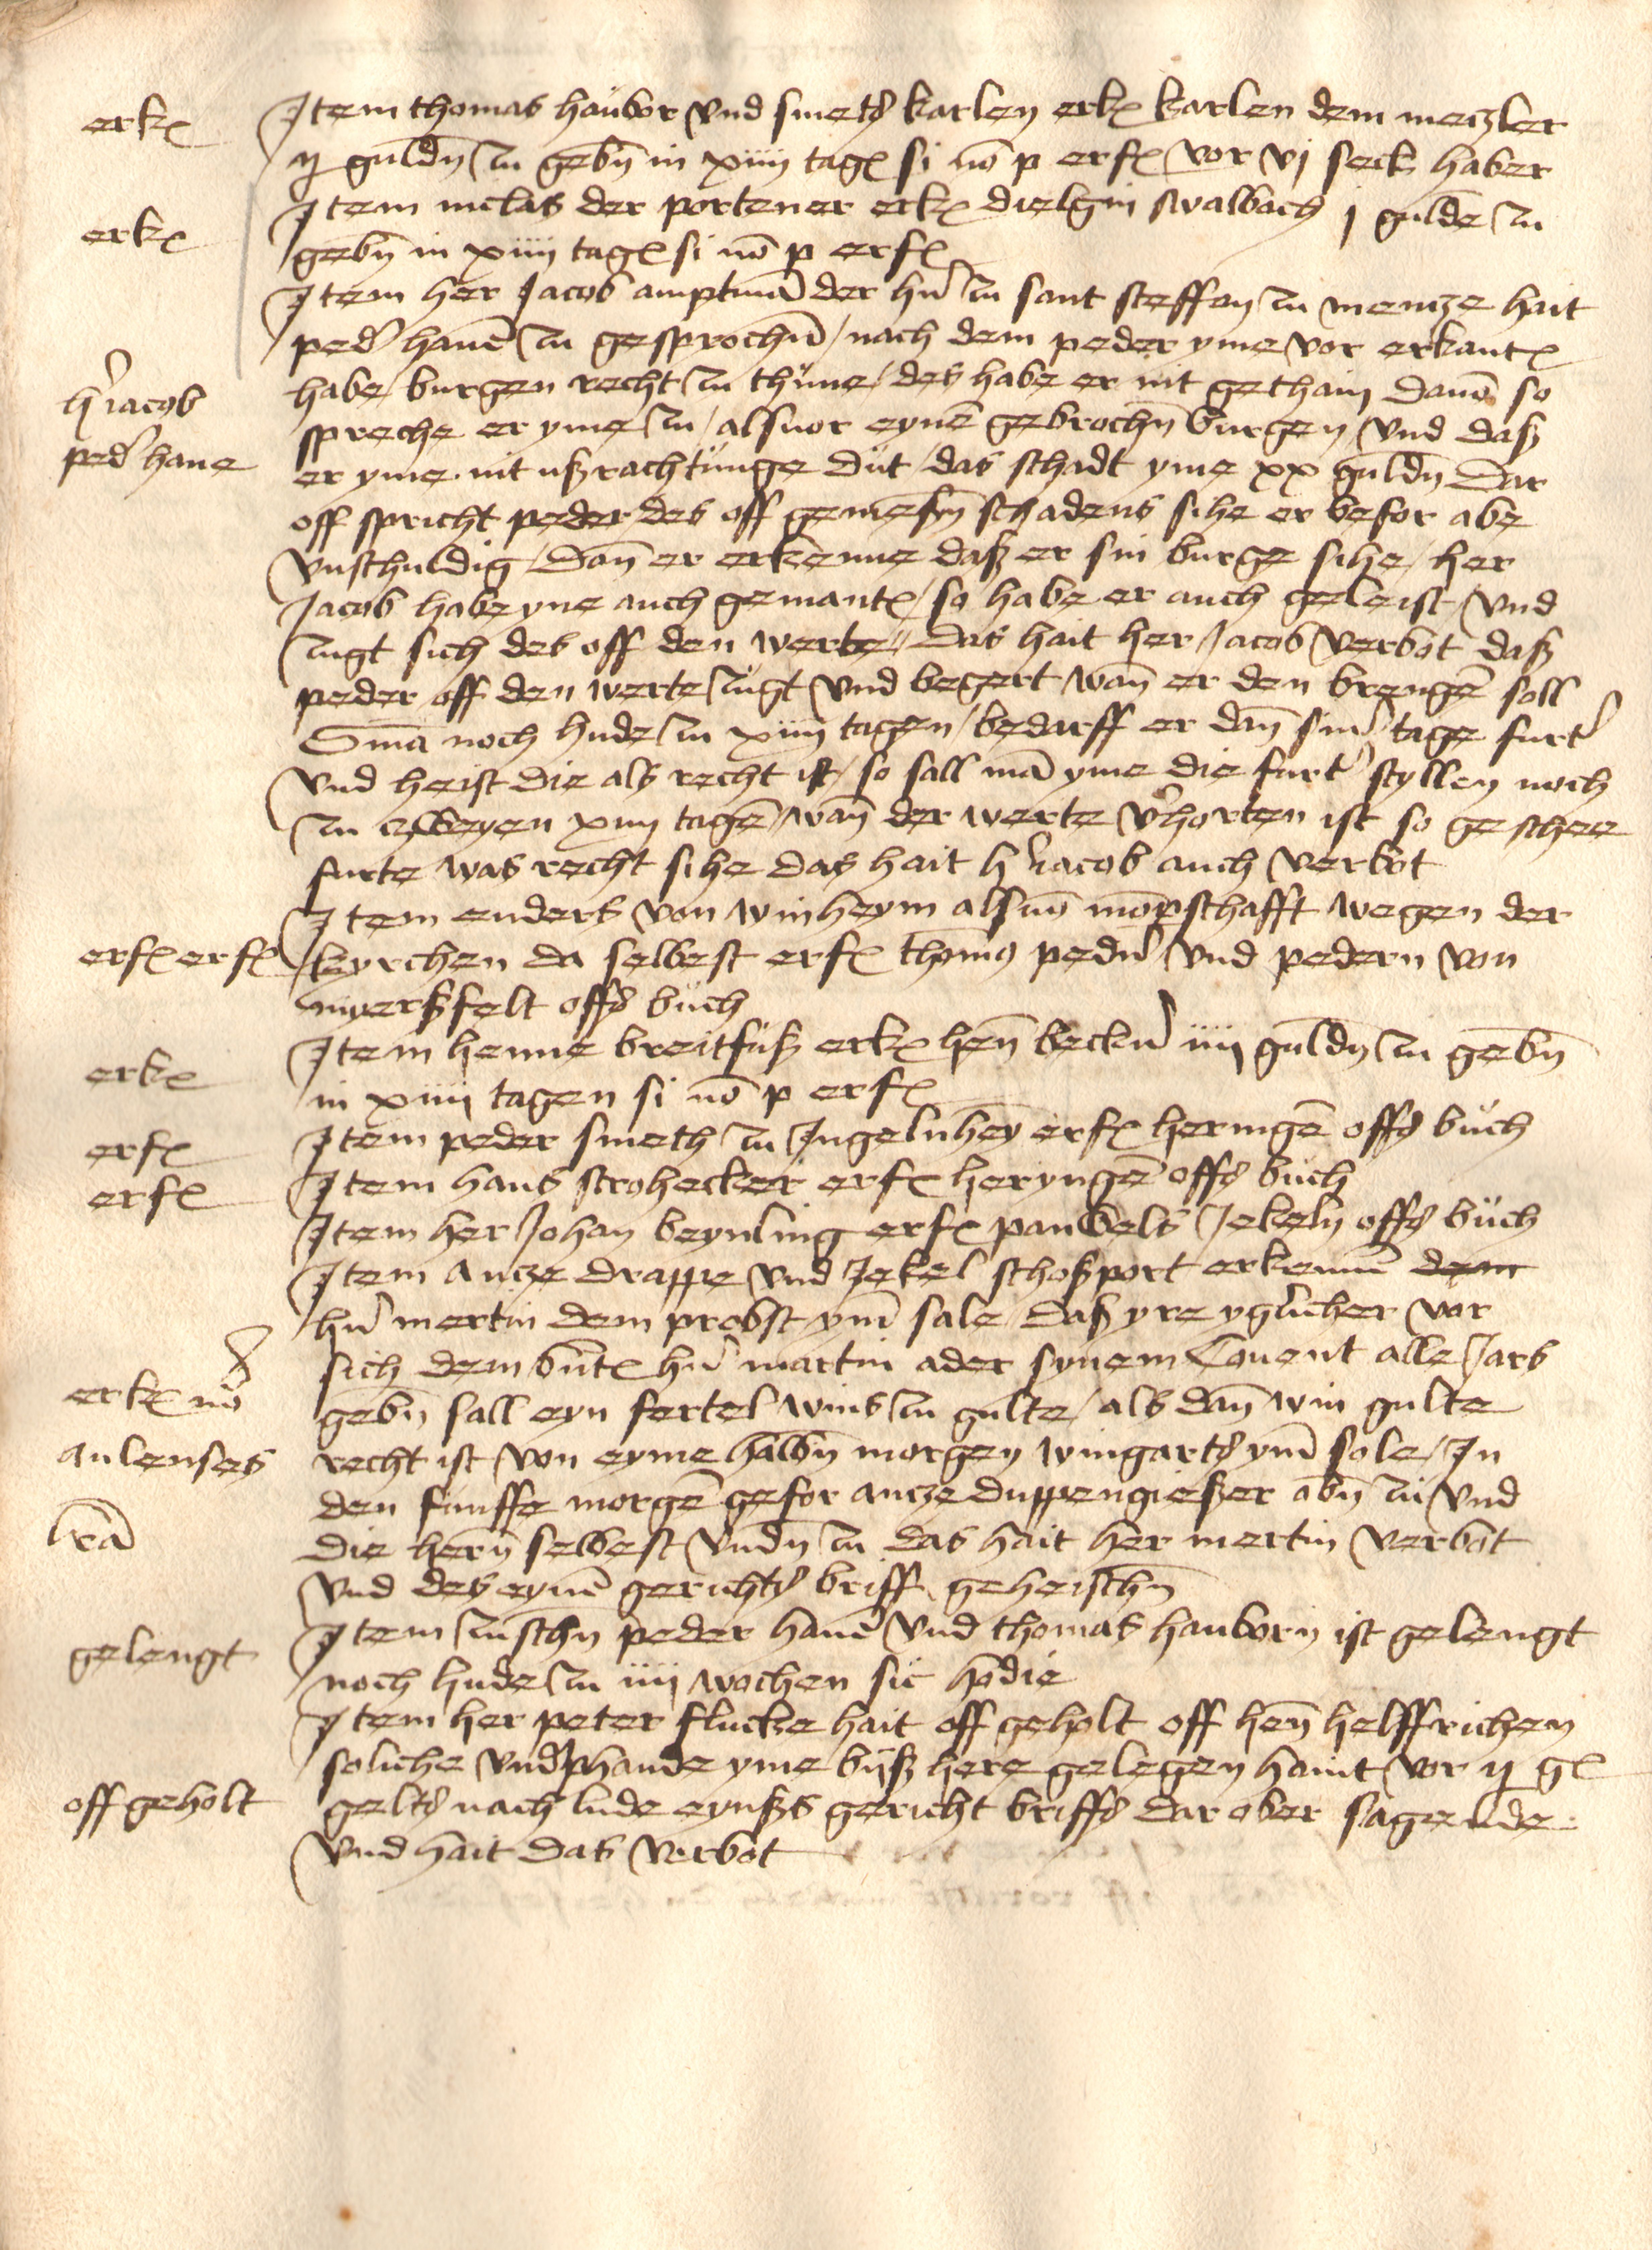 erk(
Jtem thomas haubor vnd smetƺ karlen erk( karlen dem meczler
ij guldn̄ zu gebn̄ in xiiij tag( si nō p erf( vor vj seck haber
erk(
Jtem niclas der portener erk( dielgin swalbach j guldē zu
gebn̄ in xiiij tag( si nō p erf(
Jtem her Jacob amptmā der hn̄ zu sant steffan zu mencze hait
ped' hanē zu gesprochn̄ / nach dem peder yme vor erkant(
h' iacob
habe burgen recht zu thune / des habe er nit gethain danō so
spreche er yme zu / alsuor eynē gebrochn̄ burgen / vnd daß
ped' hane
er yme nit ußrachtunge dut / das schadt yme xx guldn̄ Dar
off spricht peder des off gemeſn̄ schadens sihe er befor abe
vnschuldig / Dan̄ er erkenne daß er sin burge sihe / her
Jacob habe yne auch gemant( / so habe er auch geleist / vnd
zugt sich des off den werte / Das hait her Jacob verbot daß
peder off den werte zugt vnd begert wan̄ er den brengē soll
Smā noch hude zu xiiij tagen / bedarff er dan̄ sin' tage furt'
vnd heist die als recht ist / so sall mā yme die furt' styllen noch
zu zweyen xiiij tagē / wan̄ der werte v'horten ist so geschee
furte was recht sihe das hait h' iacob auch verbot
Jtem enders von winheym als mōpschafft wegen der
erf( erf(
kyrchen da selbest erf( thomꝰ pedn̄ vnd pedern von
myerßfelt offƺ buch
erk(
Jtem henne breitfuß erk( hen̄ beckn̄ iiij guldn̄ zu gebn̄
in xiiij tagen si nō p erf(
erf(
Jtem peder smeth zu Jngelnhey̅ erf( heringē offƺ buch
erf(
Jtem hans strohecker erf( heryngē offƺ buch
Jtem her Johan beynling erf( pauwels Jekeln offƺ buch
Jtem ancze drappe vnd Jekel schoßport erkennē dem
hn̄ mertin dem probst ym̄ sale / daß yre yglicher vor
sich dem bnt( hn̄ martin ader synem Conent alle Jars
erk( nō
gebn̄ sall eyn fertel wins zu gulte / als dan̄ win gulte
aulenses
recht ist von eyme halbn̄ morgen wingartƺ ym̄ sole / Jn
den funffe morgē gefor ancze duppengießer obn̄ zu vnd
lrā
die hern̄ selbest vndn̄ zu das hait her mertin verbot
vnd des eynē gerichtƺ briff geheischn̄
Jtem zuschn̄ peder hanē vnd thomas hauborn ist gelengt
gelengt
noch hude zu iiij wochen sic hodie
Jtem her peter flucke hait off geholt off hen̄ helffrichen
soliche vndphande yme bijß here gelegen haint vor ij g(
off geholt
geltƺ nach lude eynßs gericht briffƺ dar ober sagende
vnd hait das verbot